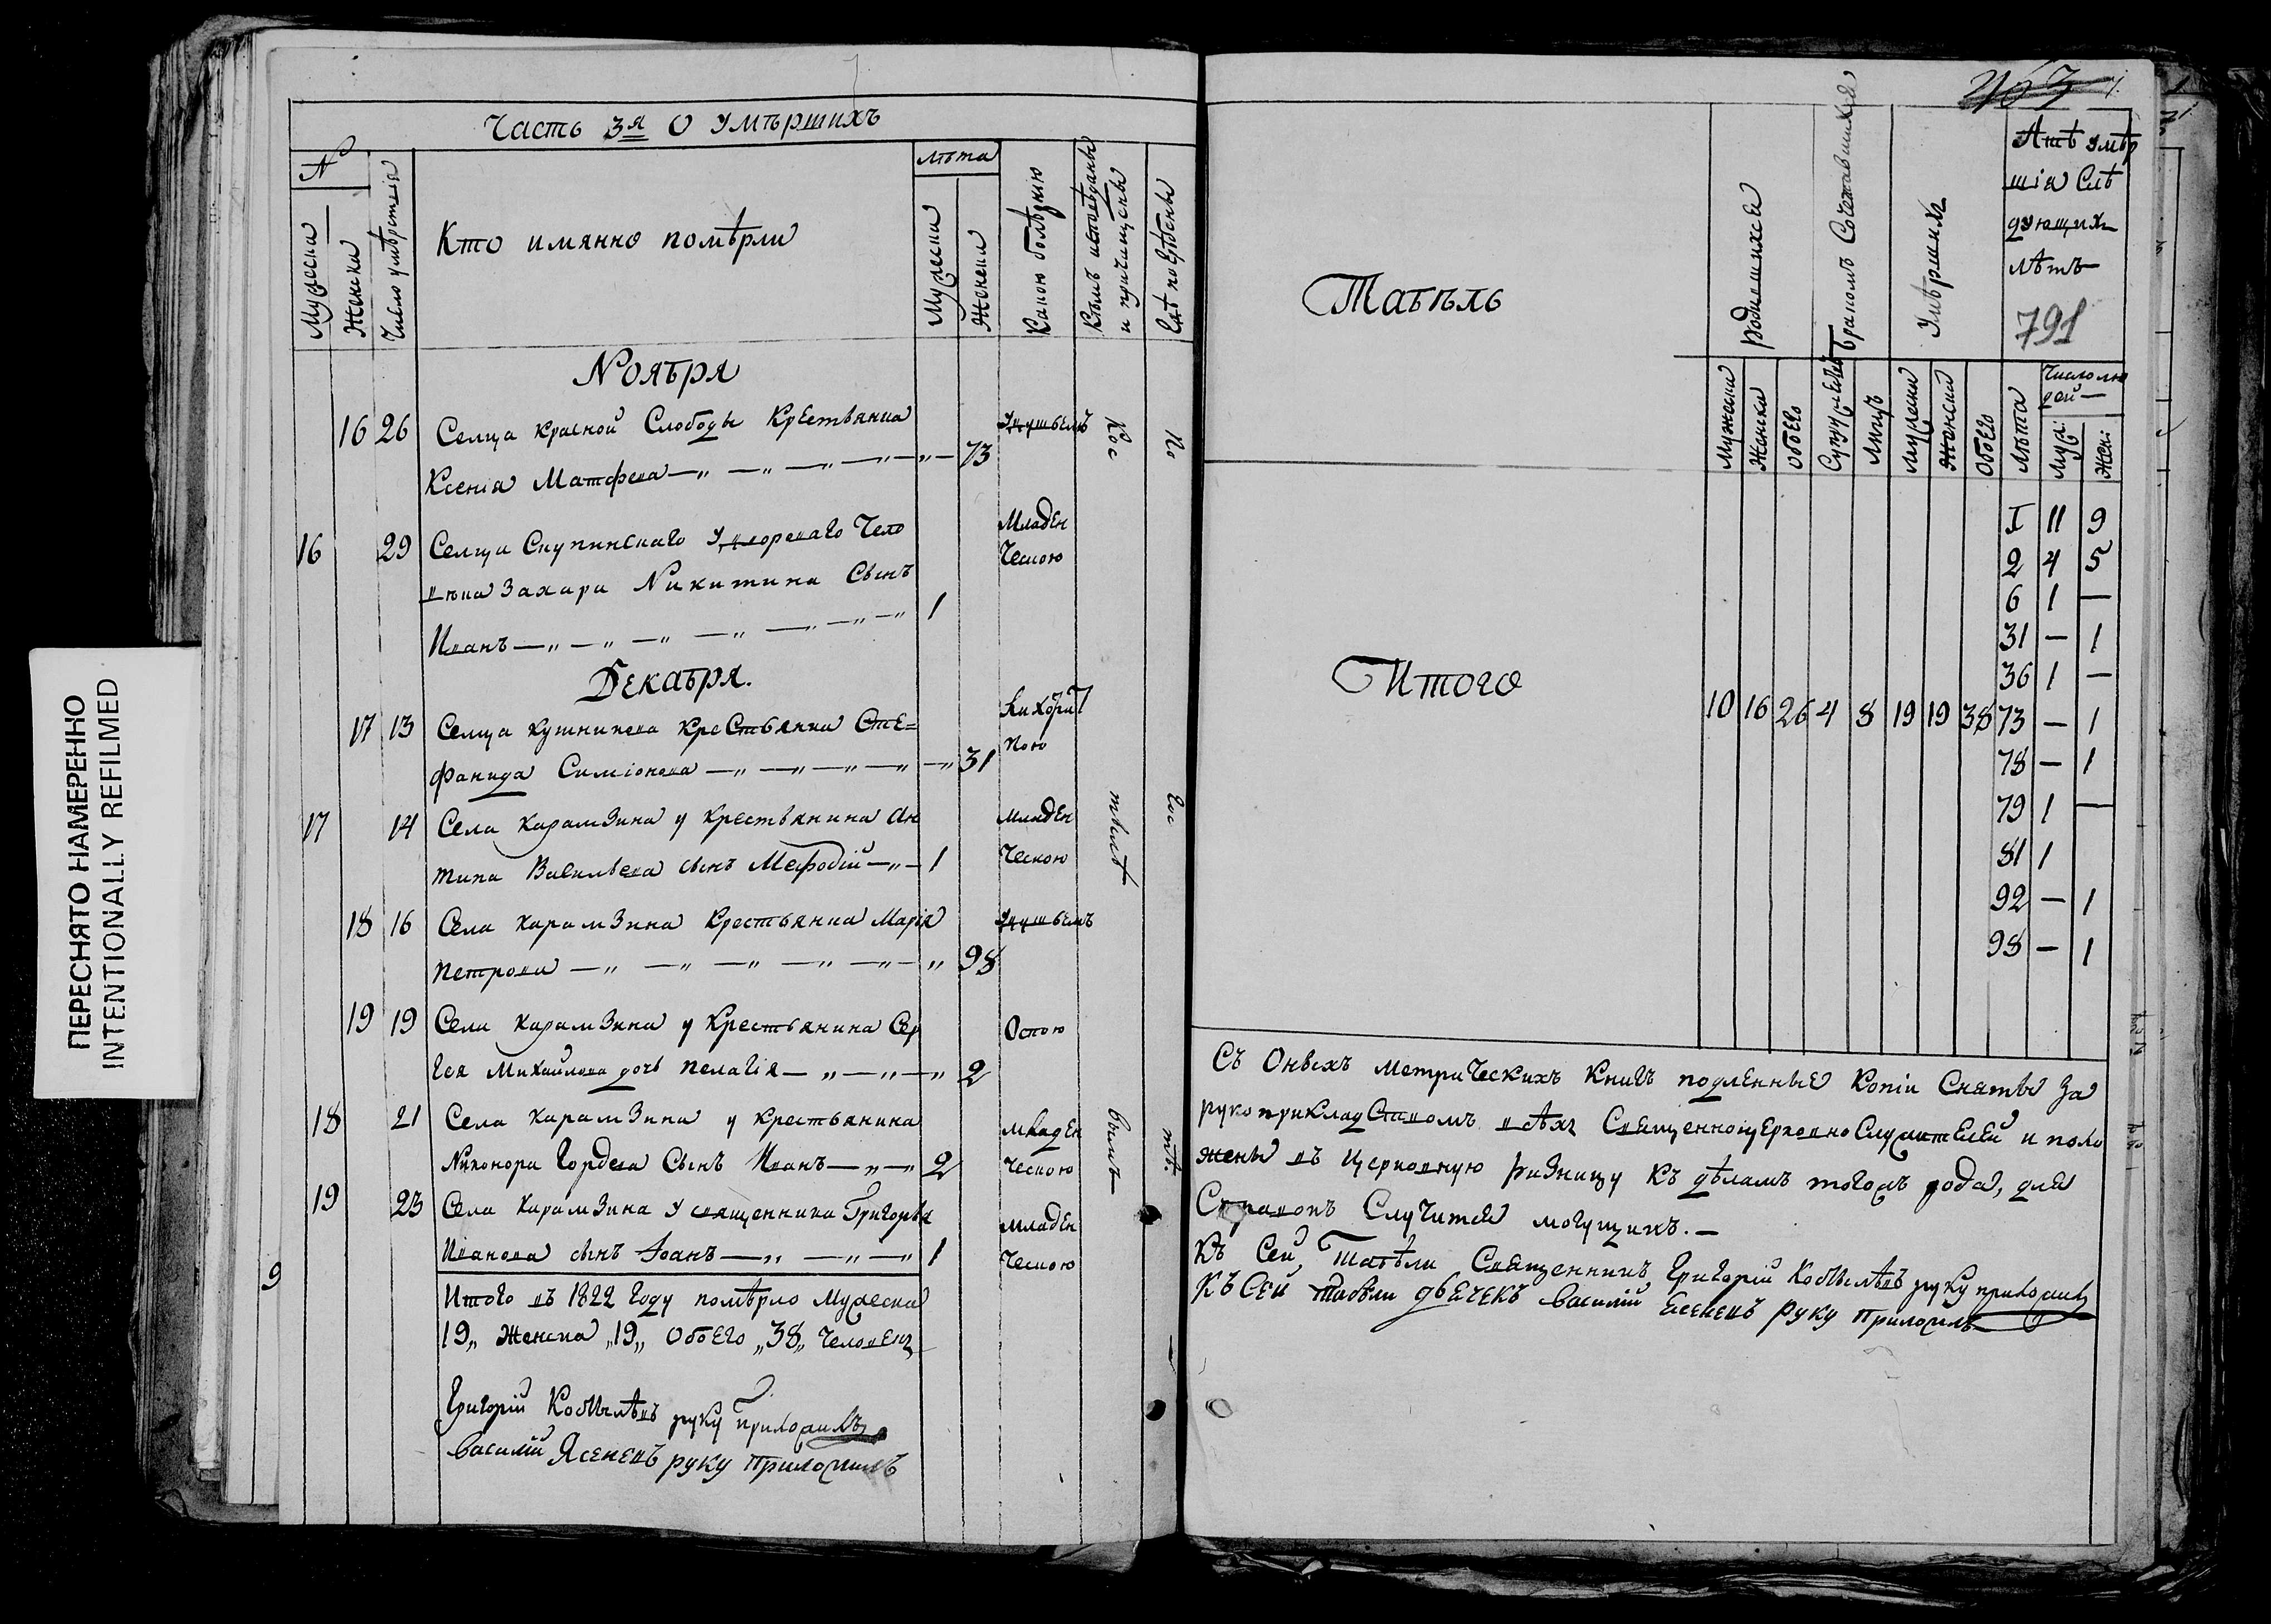 ПЕРЕСНЯТО НАМЕРЕННО
INTENTIONALLY REFILMED
Часть 3я О умѣршихъ
№
Мужеска
Женска
Число умѣрствія
Кто имянно помѣрли
лѣта
Мужеска
Женска
Какою болѣзнию
Кѣмъ исповѣданы
и причищены
Гдѣ погрѣбены
Ноября
16 26 Сельца красной Слободы Крестьянка
Ксенія Матфева 73
Удушьемъ
16 29 Сельца Скупинскаго Удворенаго Чело
века Захара Никитина Сынъ
Иванъ 1
Младен
ческою
Декабря.
17 13 Сельца кушникова крестьянка Сте=
фанида Симіонова 31
Лихорат
кою
17 14 Села Карамзина у крестьянина Ан
типа Васильева сынъ Мефодій 1
Младен
ческою
18 16 Села Карамзина Крестьянка Марія
Петрова 98
Удушьемъ
19 19 Села Карамзина у Крестьянина Сер
гея Михайлова дочь Пелагія 2
Оспою
18 21 Села Карамзина у крестьянина
Никонора Гордева Сынъ Иванъ 2
Младен
ческою
19 23 Села Карамзина у священника Григорья
Иванова сынъ Іоанъ 1
Младен
ческою
9
Итого въ 1822 году помѣрло Мужеска
19„ Женска „19„ Обоего „38„ Человекъ
Григорій Кобылѣвъ руку приложилъ
Василій Ясеневъ руку приложилъ
463
Табель
Родившихся
Бракомъ Сочетавшихся
Умѣршихъ
Лѣтъ умѣр
шія Слѣ
дующихъ
лѣтъ
791
Мужеска
Женска
Обоего
Супружествъ
Лицъ
Мужеска
Женска
Обоего
Лѣта
Число лю
дей
Муж:
Жен:
1 11 9
2 4 5
6 1 —
31 — 1
36 1 —
Итого 10 16 26 4 8 19 19 38 73 — 1
78 — 1
79 1 —
81 1
92 — 1
98 — 1
Съ Оныхъ Метрическихъ Книгъ подленные Копіи Сняты За
рукоприкладствомъ всѣхъ Священноцерковнослужителей и поло
жены въ церковную ризницу къ дѣламъ тогожъ года, для
Справокъ Случится могущихъ.—
Къ Сей Табѣли Священникъ Григорій Кобылѣвъ руку приложилъ
Къ Сей табели дьечекъ Василій Есеневъ руку приложилъ